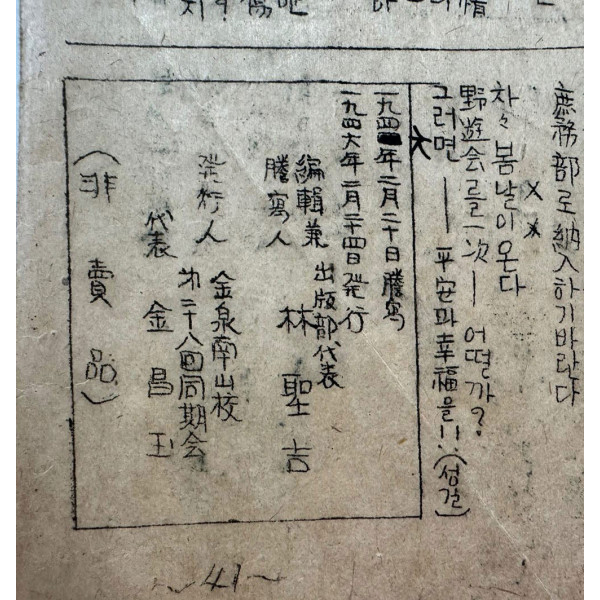 庶務部로納入하기바란다
× ×
차々봄날이온다
野遊会를一次—어떨까?
그러면 —— 平安과幸福을!!…(성길)
一九四六年二月二十日謄寫
一九四六年二月二十四日発行
編輯兼
謄寫人
出版部代表
林聖吉
発行人
金泉南山校
第二十八回同期会
代表 金昌玉
(非賣品)
~41~